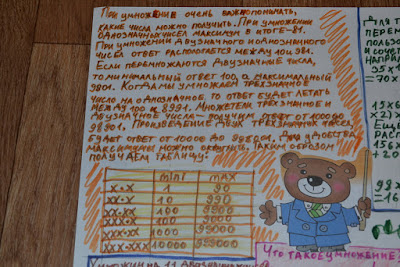 При умножение очень важно помнить,
какие числа можно получить. При умножении
однозначных чисел максимум в итоге-81.
При умножении двузначного и однозначного
чисел ответ распологается между 10 и 981.
Если перемножаются двузначные числа,
то минимальный ответ 100, а максимальный
9801. Когда мы умножаем трёхзначное
число на однозначное то ответ будет летать
между 100 и 8991. Множетели трёхзначное и
двузначное число— получим ответ от 1000 до
98901. Произведение двух трёхзначных чисел
будет ответ от 10000 до 998001. Для удобства
максимумы можно округлить. Таким образом
получаем таблицу:
mini max
x·x 1 90
xx·x 10 990
xx·xx 100 9900
xxx·x 100 9000
xxx·xx 1000 99000
xxx·xxx 10000 999000
Что такое умножение?
Умножим на 11
Для
перем
пользо
соуче
напри
35×1
=70×
15×6
×2)×
Еще
расп
156×
+20
98×
=16